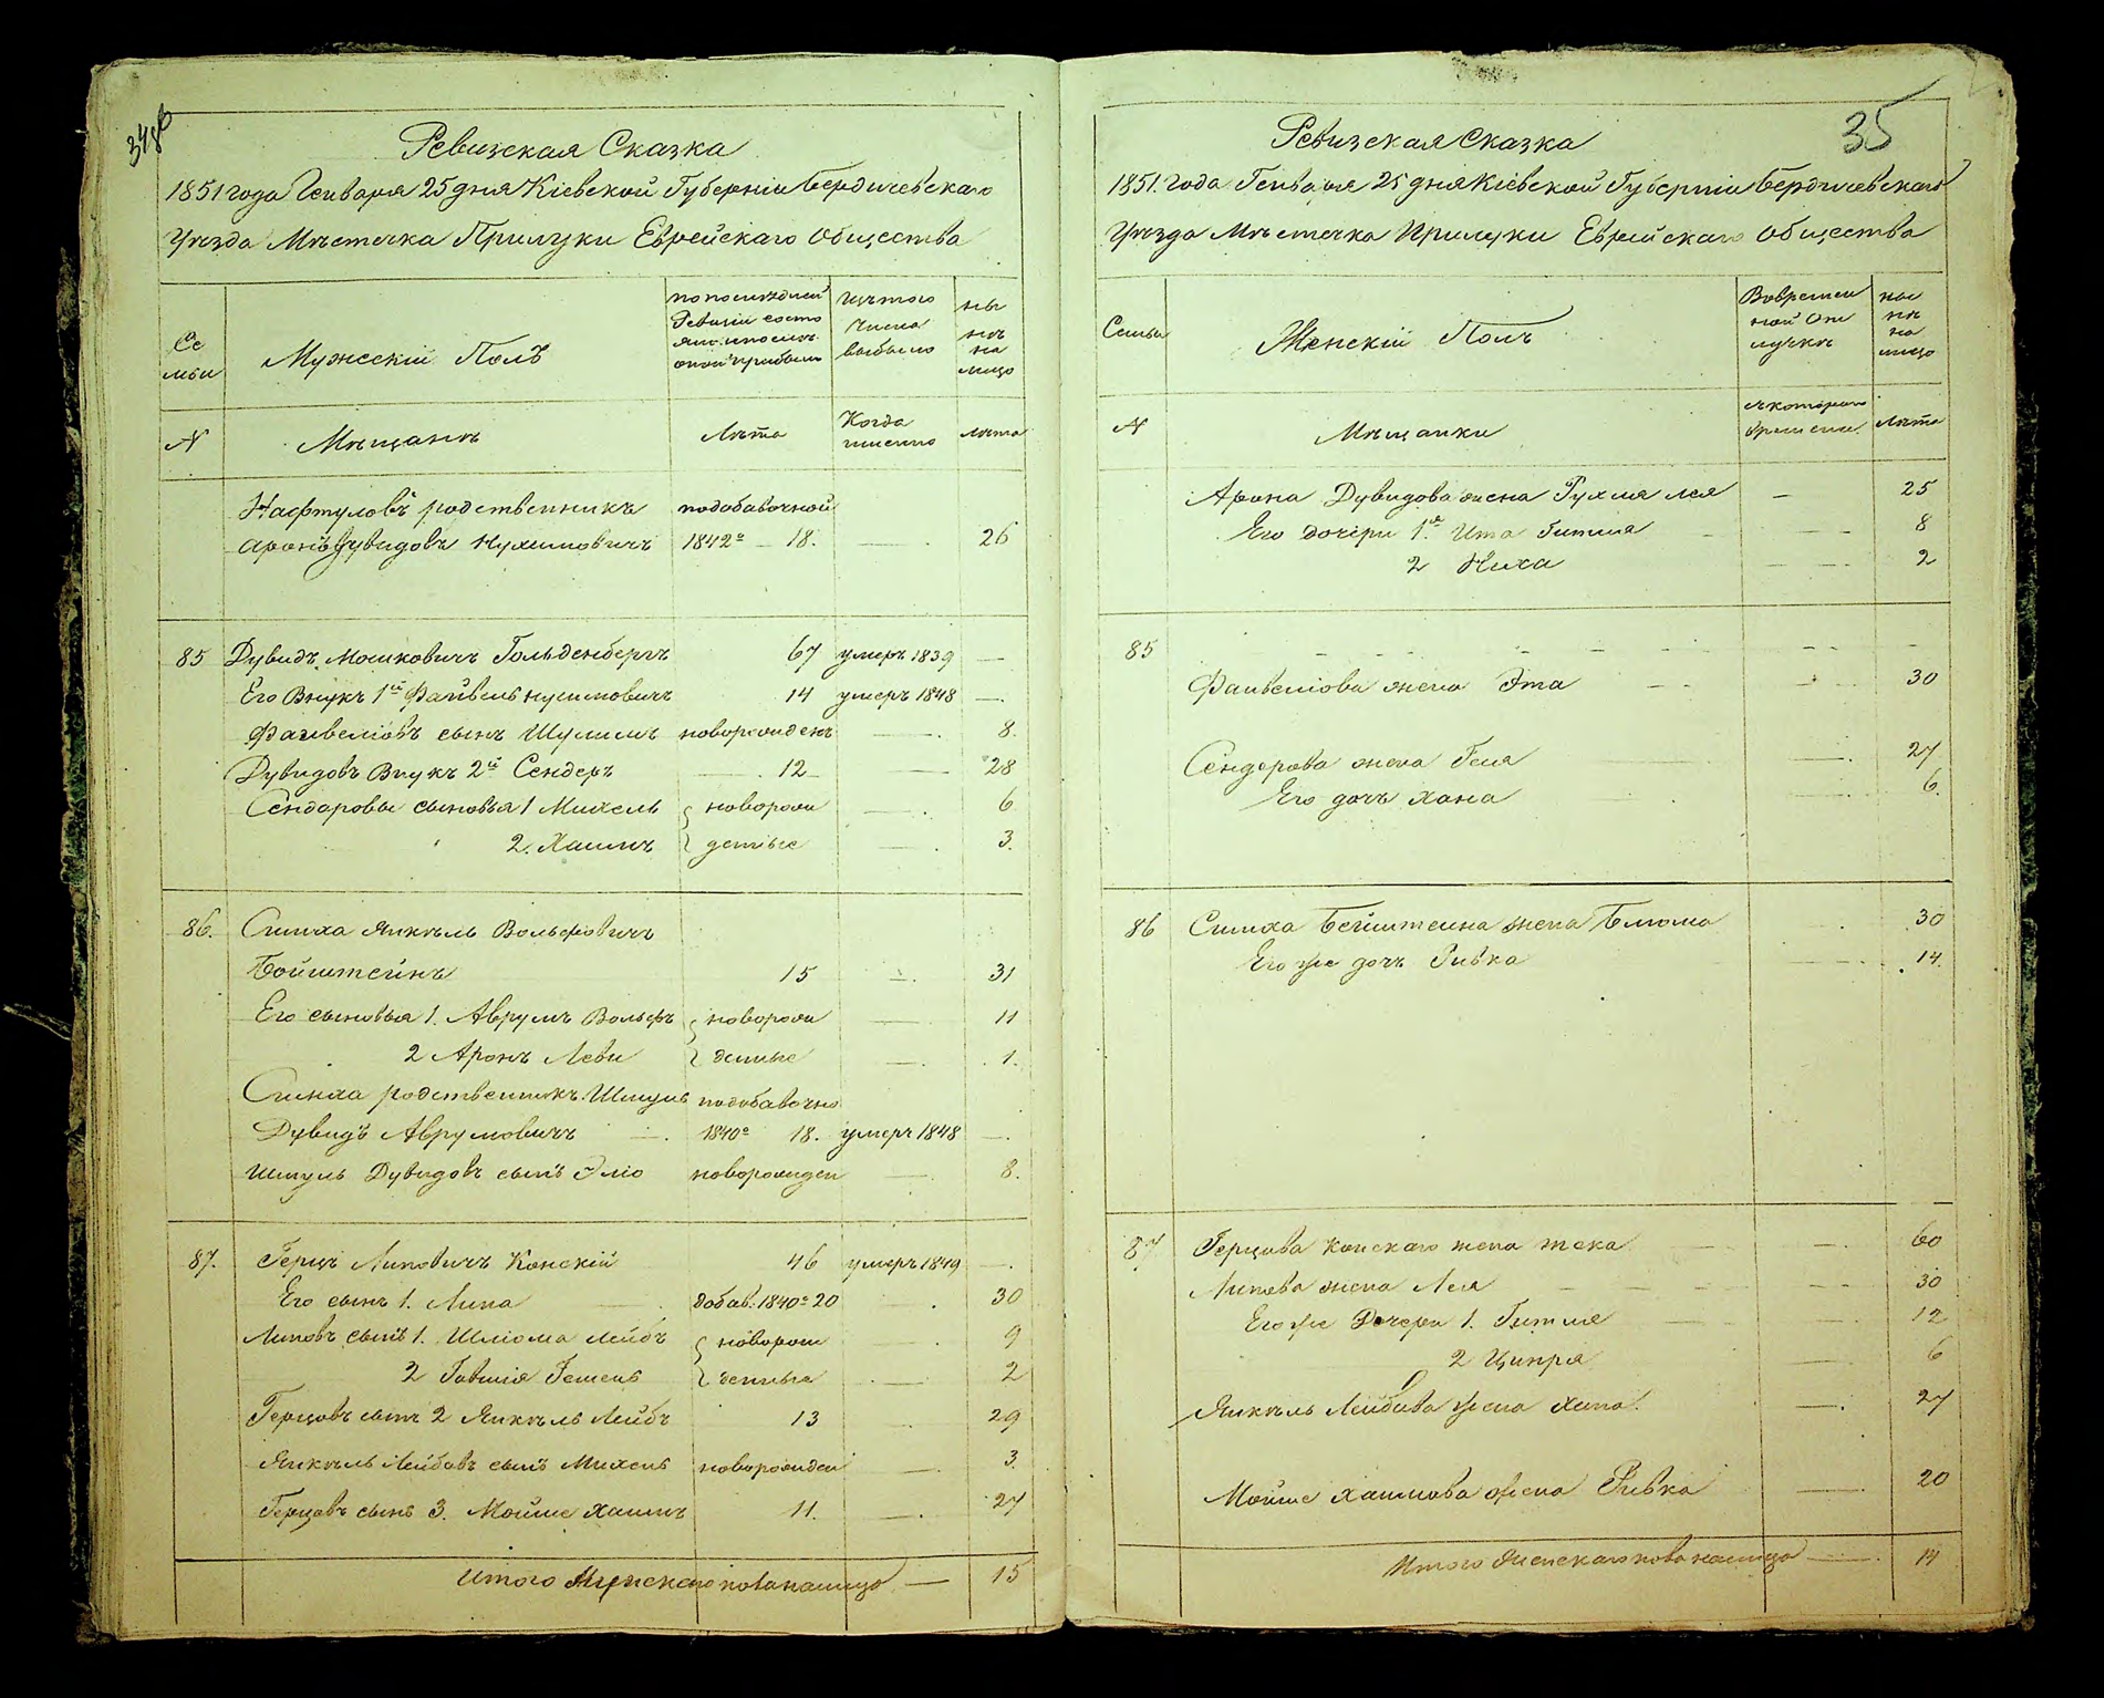 34об
Ревизская Сказка
1851 года Генваря 25 дня Кіевской Губерніи Бердичевскаго
Уѣзда Мѣстечка Прилуки Еврейскаго Общества
Се
мьи
Мужескій Полъ
по последней
Ревизіи состо
яло и после
оной прибыло
Изъ того
числа
выбыло
ны
нѣ
на
лицо
N
Мѣщанѣ
Лѣта
Когда
именно
Лѣта
Нафтуловъ родственникъ подобавочной
Аронъ Дувидовъ Нухимовичъ 1842º 18. — 26
85 Дувидъ Мошковичъ Гольденбергъ 67 умеръ 1839 —
Его Внукъ 1й Файвель Нусимовичъ 14 умеръ 1848 —
Файвеліовъ сынъ Шулимъ новорожденъ — 8.
Дувидовъ Внукъ 2й Сендеръ — 12 — 28
Сендаровы сыновья 1 Михель новорож — 6
2. Хаимъ денные — 3.
86. Симха Янкѣль Вольфовичъ
Бойштейнъ 15 — 31
Его сыновья 1. Аврумъ Вольфъ новорож — 11
2 Аронъ Леви денные — 1.
Симха родственникъ Шмуль подобавочно
Дувидъ Аврумовичъ — 1840º 18. умеръ 1848 —
Шмуль Дувидовъ сынъ Эліо новорожден — 8.
87. Герцъ Липовичъ Конскій 46 умеръ 1849 —
Его сынъ 1. Липа — добав. 1840º 20 — 30
Липовъ сынъ 1. Шліома Лейбъ новорож — 9
2 Говшія Гешель денные — 2
Герцовъ сынъ 2 Янкѣль Лейбъ 13 29
Янкѣль Лейбовъ сынъ Михель новорожден — 3.
Герцовъ сынъ 3. Мойше Хаимъ 11. — 27
Итого Мужскаго пола налицо — 15
35
Ревизская Сказка
1851. года Генваря 25 дня Кіевской Губерніи Бердичевскаго
Уѣзда Мѣстечка Прилуки Еврейскаго Общества
Семьи
Женскій Полъ
Вовремен
ной От
лучкѣ
ны
нѣ
на
лицо
N
Мѣщанки
съ котораго
времени.
Лѣта
Арона Дувидова жена Рухля Лея — 25
Его дочери 1я Ита Гитля — 8
2 Ниха — 2
85 —
Файвеліова жена Эта — 30
Сендерова жена Геня — 27
Его дочь Хана — 6.
86 Симха Бейштейна жена Блюма 30
Его же дочь Ривка 14.
87 Герцова Конскаго жена Тека — 60
Липова жена Лея — 30
Его же Дочери 1. Гитля — 12
2 Ципря — 6
Янкѣль Лейбова жена Хана. — 27
Мойше Хаимова жена Ривка — 20
Итого Женскаго пола налицо — 14